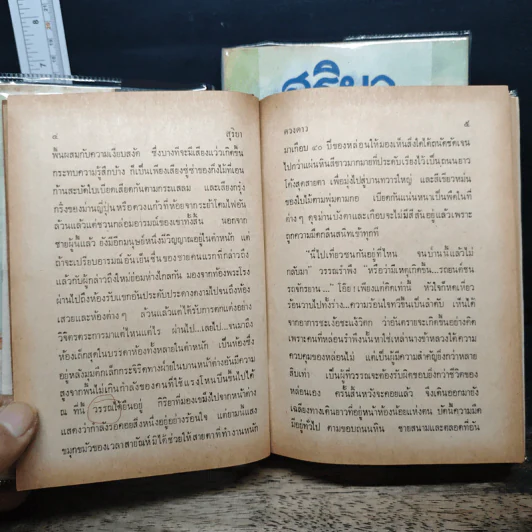 ๔
สุริยา
พื้นผสมกับความเงียบสงัด ซึ่งบางทีจะมีเสียงแว่วเกิดขึ้น
กระทบความรู้สึกบ้าง ก็เป็นเพียงเสียงซู่ซ่าของกิ่งไม้ที่เอน
ก้านสะบัดใบเบียดเสือกกันตามกระแสลม และเสียงกรุ้ง
กริ้งของม่านญี่ปุ่นหรือดวงแก้วที่ห้อยจากกระย้าโคมไฟอัน
ล้วนแล้วแต่ชวนกล่อมอารมณ์ของเขาทั้งสิ้น นอกจาก
ชายผู้นี้แล้ว ยังมีอีกมนุษย์หนึ่งมีวิญญาณอยู่ในตำหนัก แต่
ถ้าจะเปรียบอารมณ์อันเป็นชิ้นของชายคนแรกที่กล่าวถึง
แล้วกับผู้กล่าวถึงใหม่ย่อมห่างไกลกัน มองจากห้องพระโรง
ผ่านไปถึงห้องรับแขกอันประดับประดางดงามไปจนถึงห้อง
เสวยและห้องต่าง ๆ ล้วนแล้วแต่ได้รับการตกแต่งอย่าง
วิจิตรตระการมาแต่ไหนแต่ไร ผ่านไป...เลยไป...จนมาถึง
ห้องเล็กสุดในบรรดาห้องทั้งหลายในตำหนัก เป็นห้องซึ่ง
อยู่หลังมุมตึกเล็กกระจิริดทางฝ่ายในบานหน้าต่างอันมีความ
สูงจากพื้นไม่เกินกำลังของคนที่ใช้แรงโหนปีนขึ้นไปได้
ณ ที่นี้ วรรณใช้ยืนอยู่ กิริยาที่มองเขม้งไปจากหน้าต่าง
แสดงว่ากำลังรอคอยสิ่งหนึ่งอยู่อย่างร้อนใจ แต่ยามนี้แสง
ขมุกขมัวของเวลาสายัณห์มิได้ช่วยให้สายตาที่ทำงานหนัก
ดวงดาว
๕
มาเกือบ ๔๐ ปีของหล่อนให้มองเห็นสิ่งใดได้ถนัดชัดเจน
ไปกว่าแผ่นหินสีขาวมากมายที่ประดับเรียงไว้เป็นถนนยาว
โค้งสุดสายตา เพื่อมุ่งไปสู่บานทวารใหญ่ และสีเขียวหม่น
ของใบไม้ตามพุ่มคามกอ เบียดกันแน่นหนาเป็นพืดไปในที่
ต่าง ๆ ดุจม่านบังตาและเกือบจะไม่มีสีสันอยู่แล้วเพราะ
ถูกความมืดกลืนสนิทเข้าทุกที
"นี่ไปเที่ยวชนกันอยู่ที่ไหน จนป่านนี้แล้วไม่
กลับมา" วรรณรำพึง "หรือว่ามีเหตุเกิดขึ้น...รถยนต์ชน
รถจักรยาน..." โอ๊ย ! เพียงแค่คิดเท่านี้ หัวใจก็หดเดี๋ยว
ร้อนวาบไปทั้งร่าง...ความร้อนใจทวีขึ้นเป็นลำดับ เห็นได้
จากอาการชะเง้อชะแง้วิตก ว่าอันตรายจะเกิดขึ้นอย่างคิด
เพราะคนที่หล่อนรำพึงนั้นหาใช่เหล่านางข้าหลวงใต้ความ
ควบคุมของหล่อนไม่ แต่เป็นผู้มีความสำคัญยิ่งกว่าหลาย
สิบเท่า เป็นผู้ที่วรรณจะต้องรับผิดชอบยิ่งกว่าชีวิตของ
หล่อนเอง ครั้นสิ้นหวังจะคอยแล้ว จึงเดินออกมายัง
เฉลียงทางเดินยาวที่อยู่หน้าห้องน้อยแห่งตน บัดนี้ความมืด
มีอยู่ทั่วไป ตามขอบถนนหิน ชายสนามและตลอดที่อัน